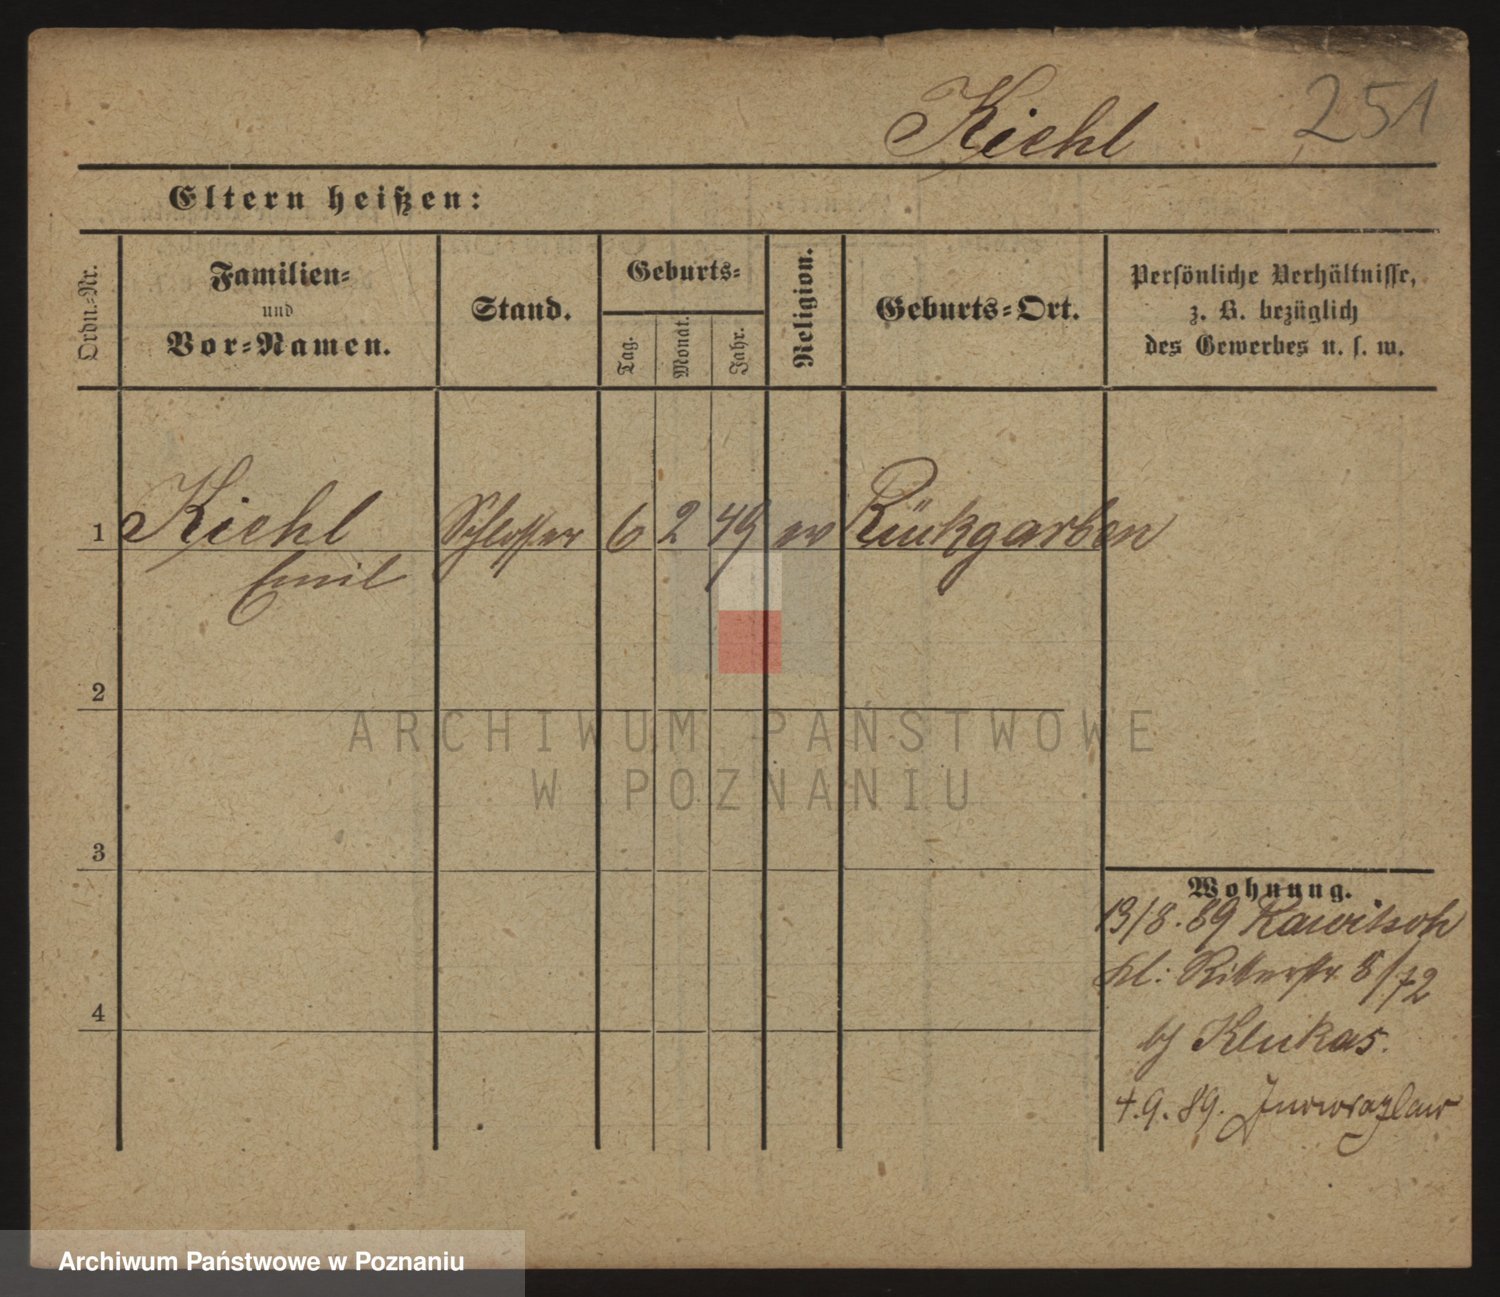 Kiehl
251
Eltern heißen:
Ordn.-Nr.
Familien-
und
Vor-Namen.
Stand.
Geburts-
Tag.
Monat.
Jahr.
Religion.
Geburts-Ort.
Persönliche Verhältnisse,
z. B. bezüglich
des Gewerbes u. s. w.
1 Kiehl Schlosser 6 2 49 ev Rückgarben
Emil
2
ARCHIWUM PAŃSTWOWE
W POZNANIU
3
Wohnung.
13/8.89 Rawitsch
kl: Ritterstr 8/72
4
bj Klukas.
4.9.89. Inowrazlaw
Archiwum Państwowe w Poznaniu